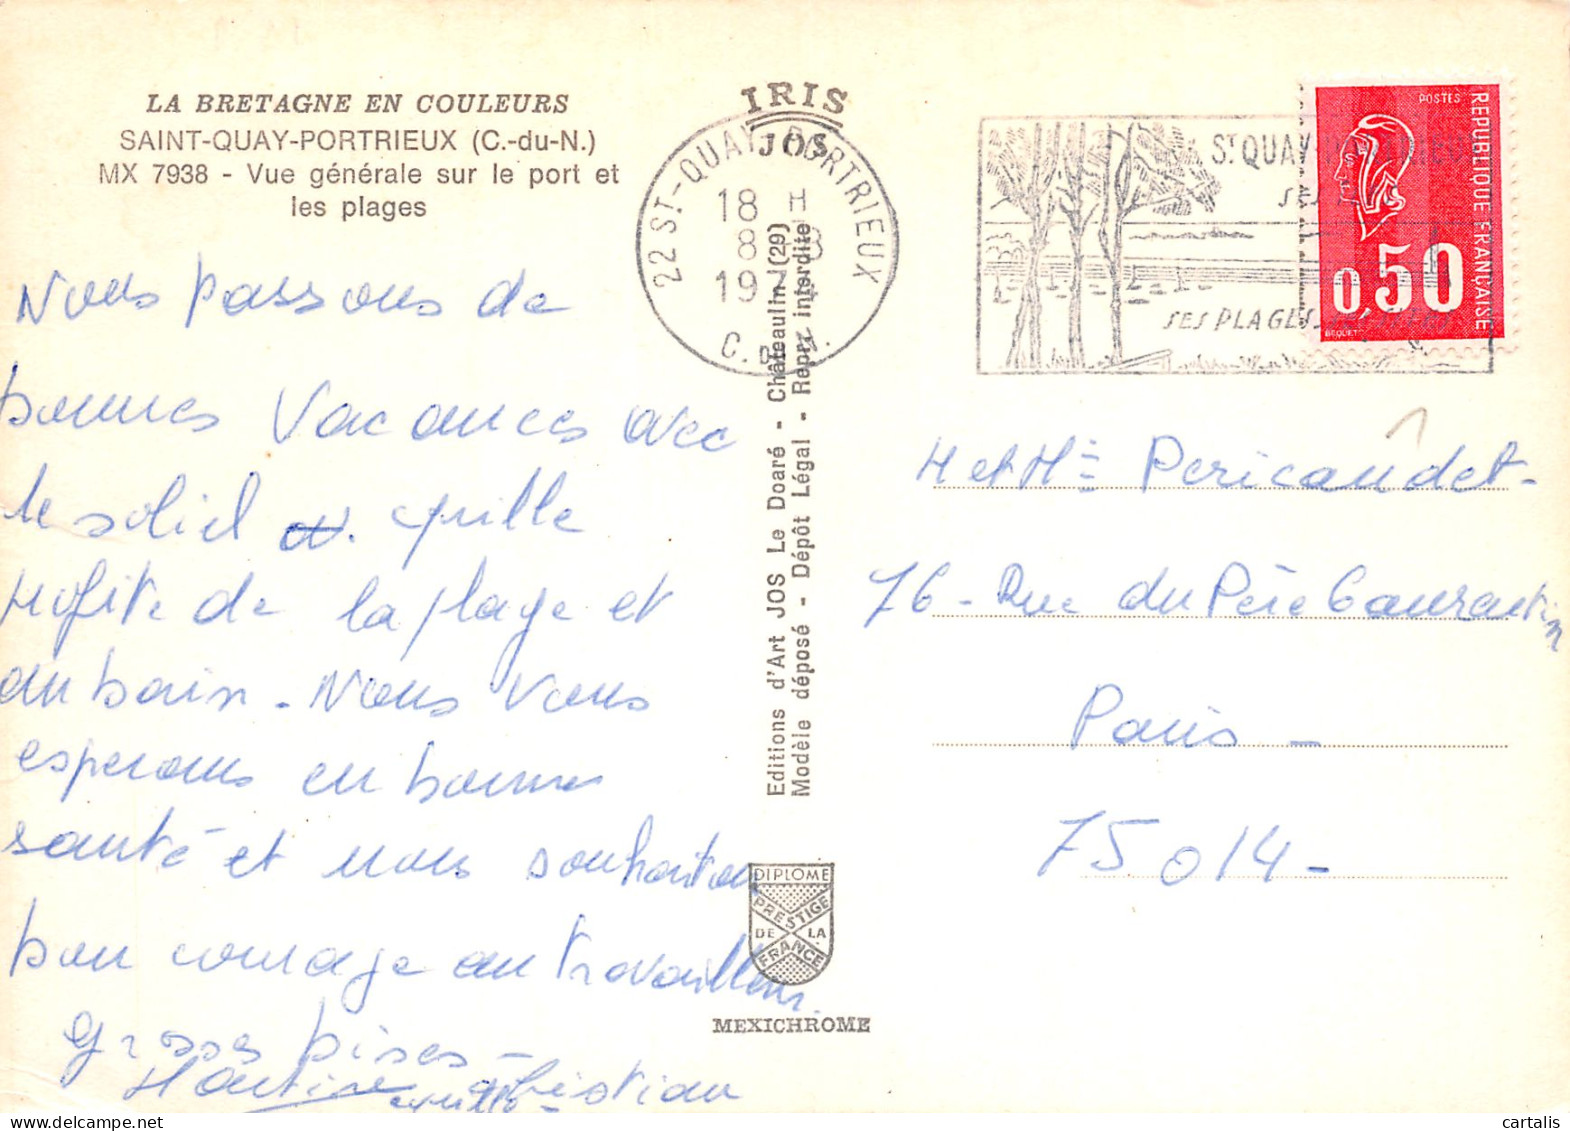 LA BRETAGNE EN COULEURS
SAINT-QUAY-PORTRIEUX (C.-du-N.)
MX 7938 - Vue générale sur le port et
les plages
Nous passons de
bonnes vacances avec
le soleil cyrille
profite de la plage et
au bain - Nous vous
esperons en bonne
santé et nous souhaitons
bon courage au travailleur.
Grosses bises -
Martine christian
cyrille
IRIS
JOS
22 ST-QUAY-PORTRIEUX
18 H
8 - 8
1974
C. DU N.
Editions d'Art JOS Le Doaré - Châteaulin (29)
Modèle déposé - Dépôt Légal - Repr. interdite
DIPLOME
PRESTIGE
DE LA
FRANCE
MEXICHROME
ST QUAY
SES
SES PLAGES
POSTES
REPUBLIQUE FRANÇAISE
0,50
BEQUET
M et Me Pericaudet -
76 - Rue du Père Corentin
Paris -
75014 -
cartalis
www.delcampe.net